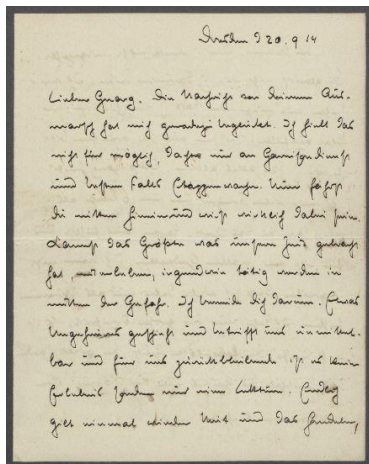 Dresden d 20. 9 14
Lieber Georg. Die Nachricht von deinem Aus-
marsch hat mich geradezu begeistert. Ich hielt das
nicht für möglich, dachte nur an Garnisondienst
und besten Falls Etappenwache. Nun fährst
du mitten hinein und wirst wirklich dabei sein.
das Größte was unsere Zeit gebracht
hat, miterleben, irgendwie tätig werden in
mitten der Gefahr. Ich beneide dich darum. Etwas
Ungeheures geschieht und betrifft uns unmittel-
bar und für uns zurückbleibende ist es kein
Erlebnis sondern nur eine Lektüre. Endlich
gilt einmal wieder Mut und das Handeln,